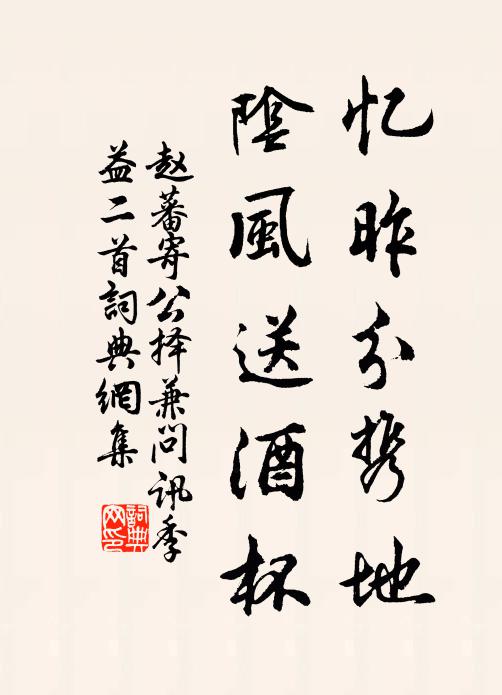 忆昨分携地
陰風送酒杯
赵蕃寄公择兼问讯季
益二首詞典網集
詞典网印